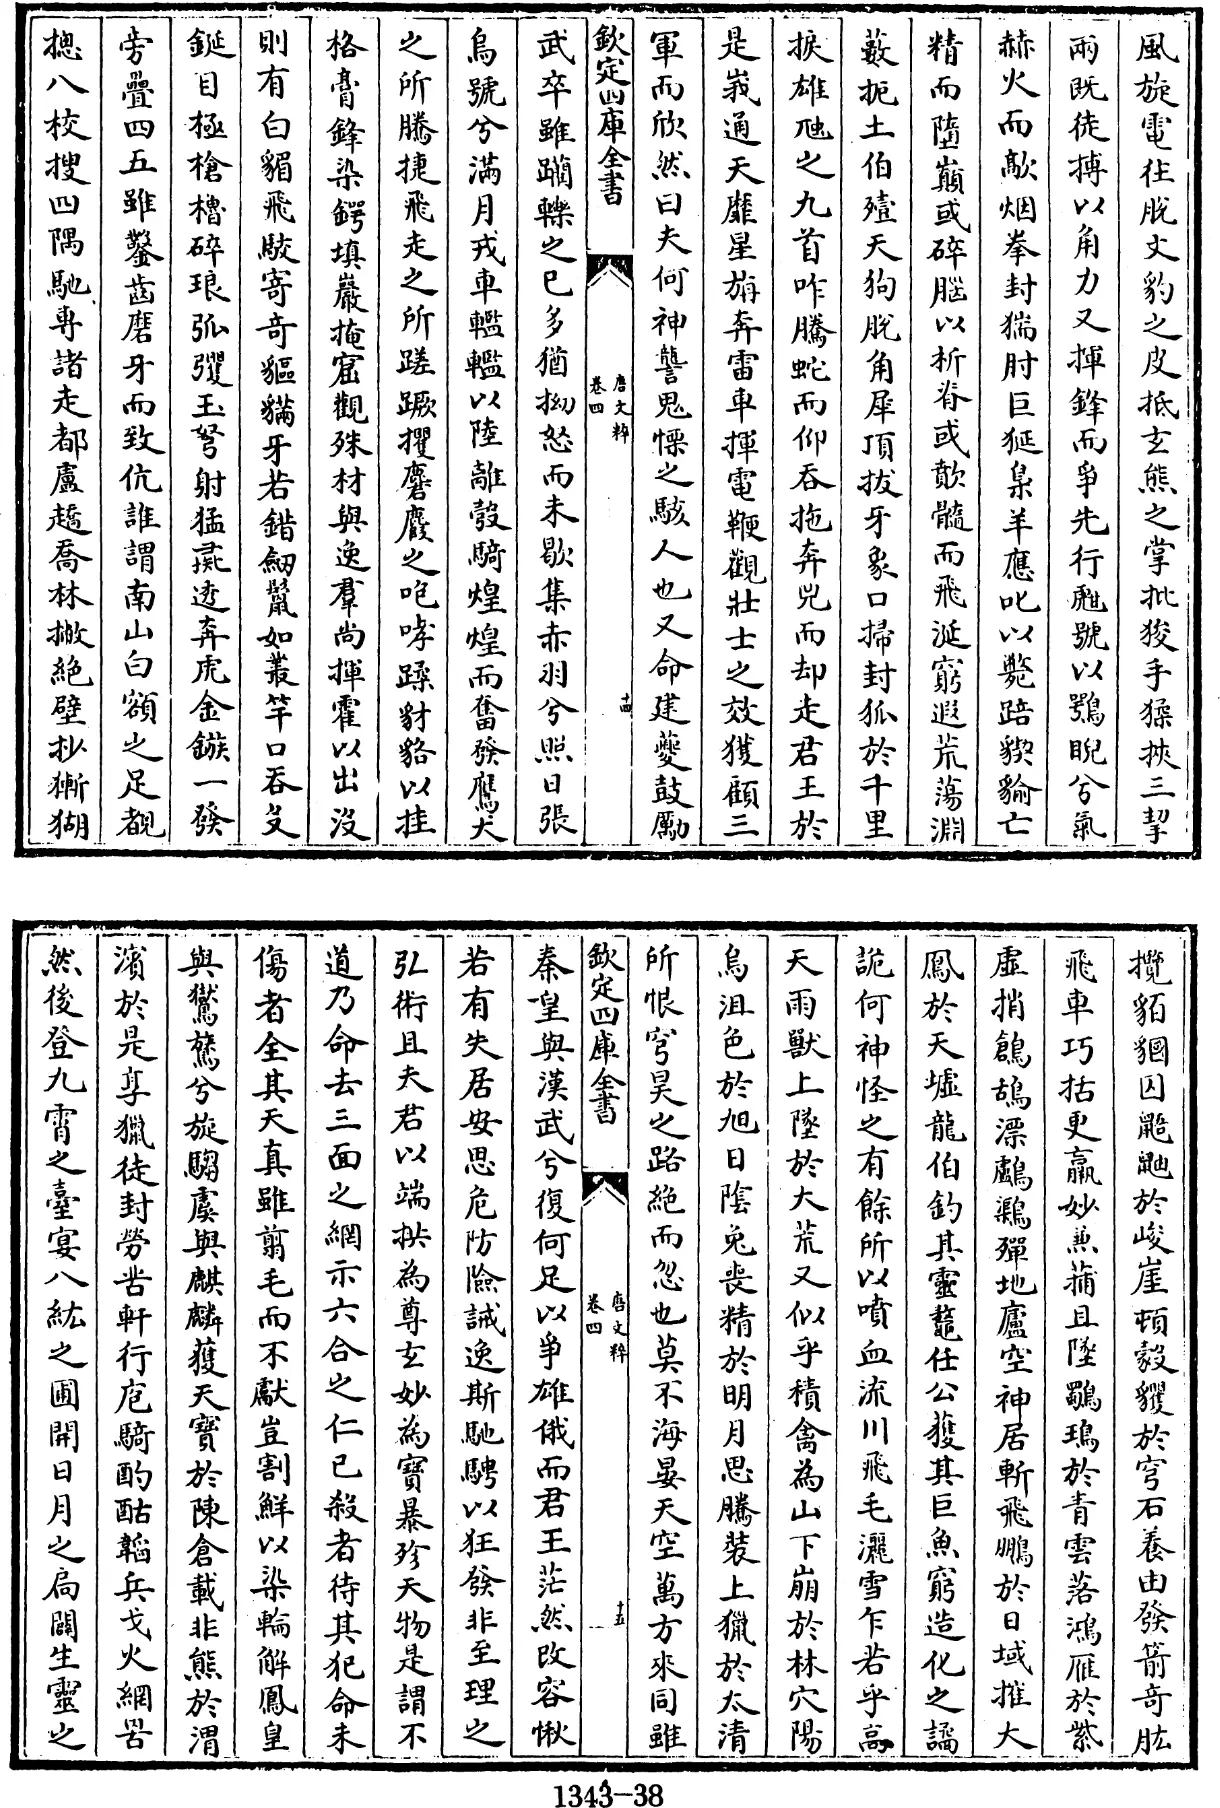 風旋電往脫文豹之皮抵玄熊之掌批狻手猱挾三挈
兩既徒搏以角力又揮鋒而爭先行甝號以鶚睨兮氣
赫火而敵烟拳封猯肘巨狿梟羊應叱以斃踣猰貐亡
精而墮巔或碎腦以析脊或歕髓而飛涎窮遐荒蕩淵
藪扼土伯殪天狗脫角犀頂拔牙象口掃封狐於千里
捩雄虺之九首咋騰蛇而仰吞拖奔兕而却走君王於
是峩通天靡星旃奔雷車揮電鞭觀壯士之效獲顧三
軍而欣然曰夫何神讋鬼慄之駭人也又命建夔鼓勵
欽定四庫全書
唐文粹
卷四
十四
武卒雖躪轢之已多猶拗怒而未歇集赤羽兮照日張
烏號兮滿月戎車轞轞以陸離彀騎煌煌而奮發鷹犬
之所騰捷飛走之所蹉蹶攫麏麚之咆哮蹂豺貉以挂
格膏鋒染鍔填巖掩窟觀殊材與逸羣尚揮霍以出沒
則有白貙飛駮寄奇貙貓牙若錯劒鬣如叢竿口吞殳
鋋目極槍櫓碎琅弧攫玉弩射猛彘透奔虎金鏃一發
旁疊四五雖鑿齒磨牙而致伉誰謂南山白額之足覩
摠八校搜四隅馳專諸走都盧趫喬林撇絕壁抄獑猢
攬貊㹮囚鼬䶈於峻崖頓縠玃於穹石養由發箭奇肱
飛車巧括更羸妙兼蒲且墜䴔鵁於青雲落鴻雁於紫
虛捎鶬鴰漂鸕鷀殫地廬空神居斬飛鵬於日域摧大
鳳於天墟龍伯釣其靈鼇任公獲其巨魚窮造化之譎
詭何神怪之有餘所以噴血流川飛毛灑雪乍若乎高
天雨獸上墜於大荒又似乎積禽為山下崩於林穴陽
烏沮色於旭日陰兔喪精於明月思騰裝上獵於太清
所恨穹昊之路絕而忽也莫不海晏天空萬方來同雖
欽定四庫全書
唐文粹
卷四
十五
秦皇與漢武兮復何足以爭雄俄而君王茫然改容愀
若有失居安思危防險誡逸斯馳騁以狂發非至理之
弘術且夫君以端拱為尊玄妙為寶暴殄天物是謂不
道乃命去三面之網示六合之仁已殺者待其犯命未
傷者全其天真雖剪毛而不獻豈割鮮以染輪解鳳皇
與鸑鷟兮旋騶虞與麒麟獲天寶於陳倉載非熊於渭
濱於是享獵徒封勞苦軒行庖騎酌酤韜兵戈火網罟
然後登九霄之臺宴八紘之圃開日月之扃闢生靈之
1343-38